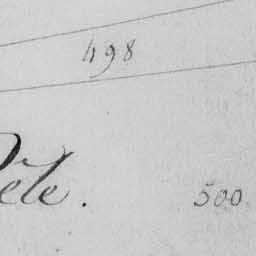 498
ete. 500